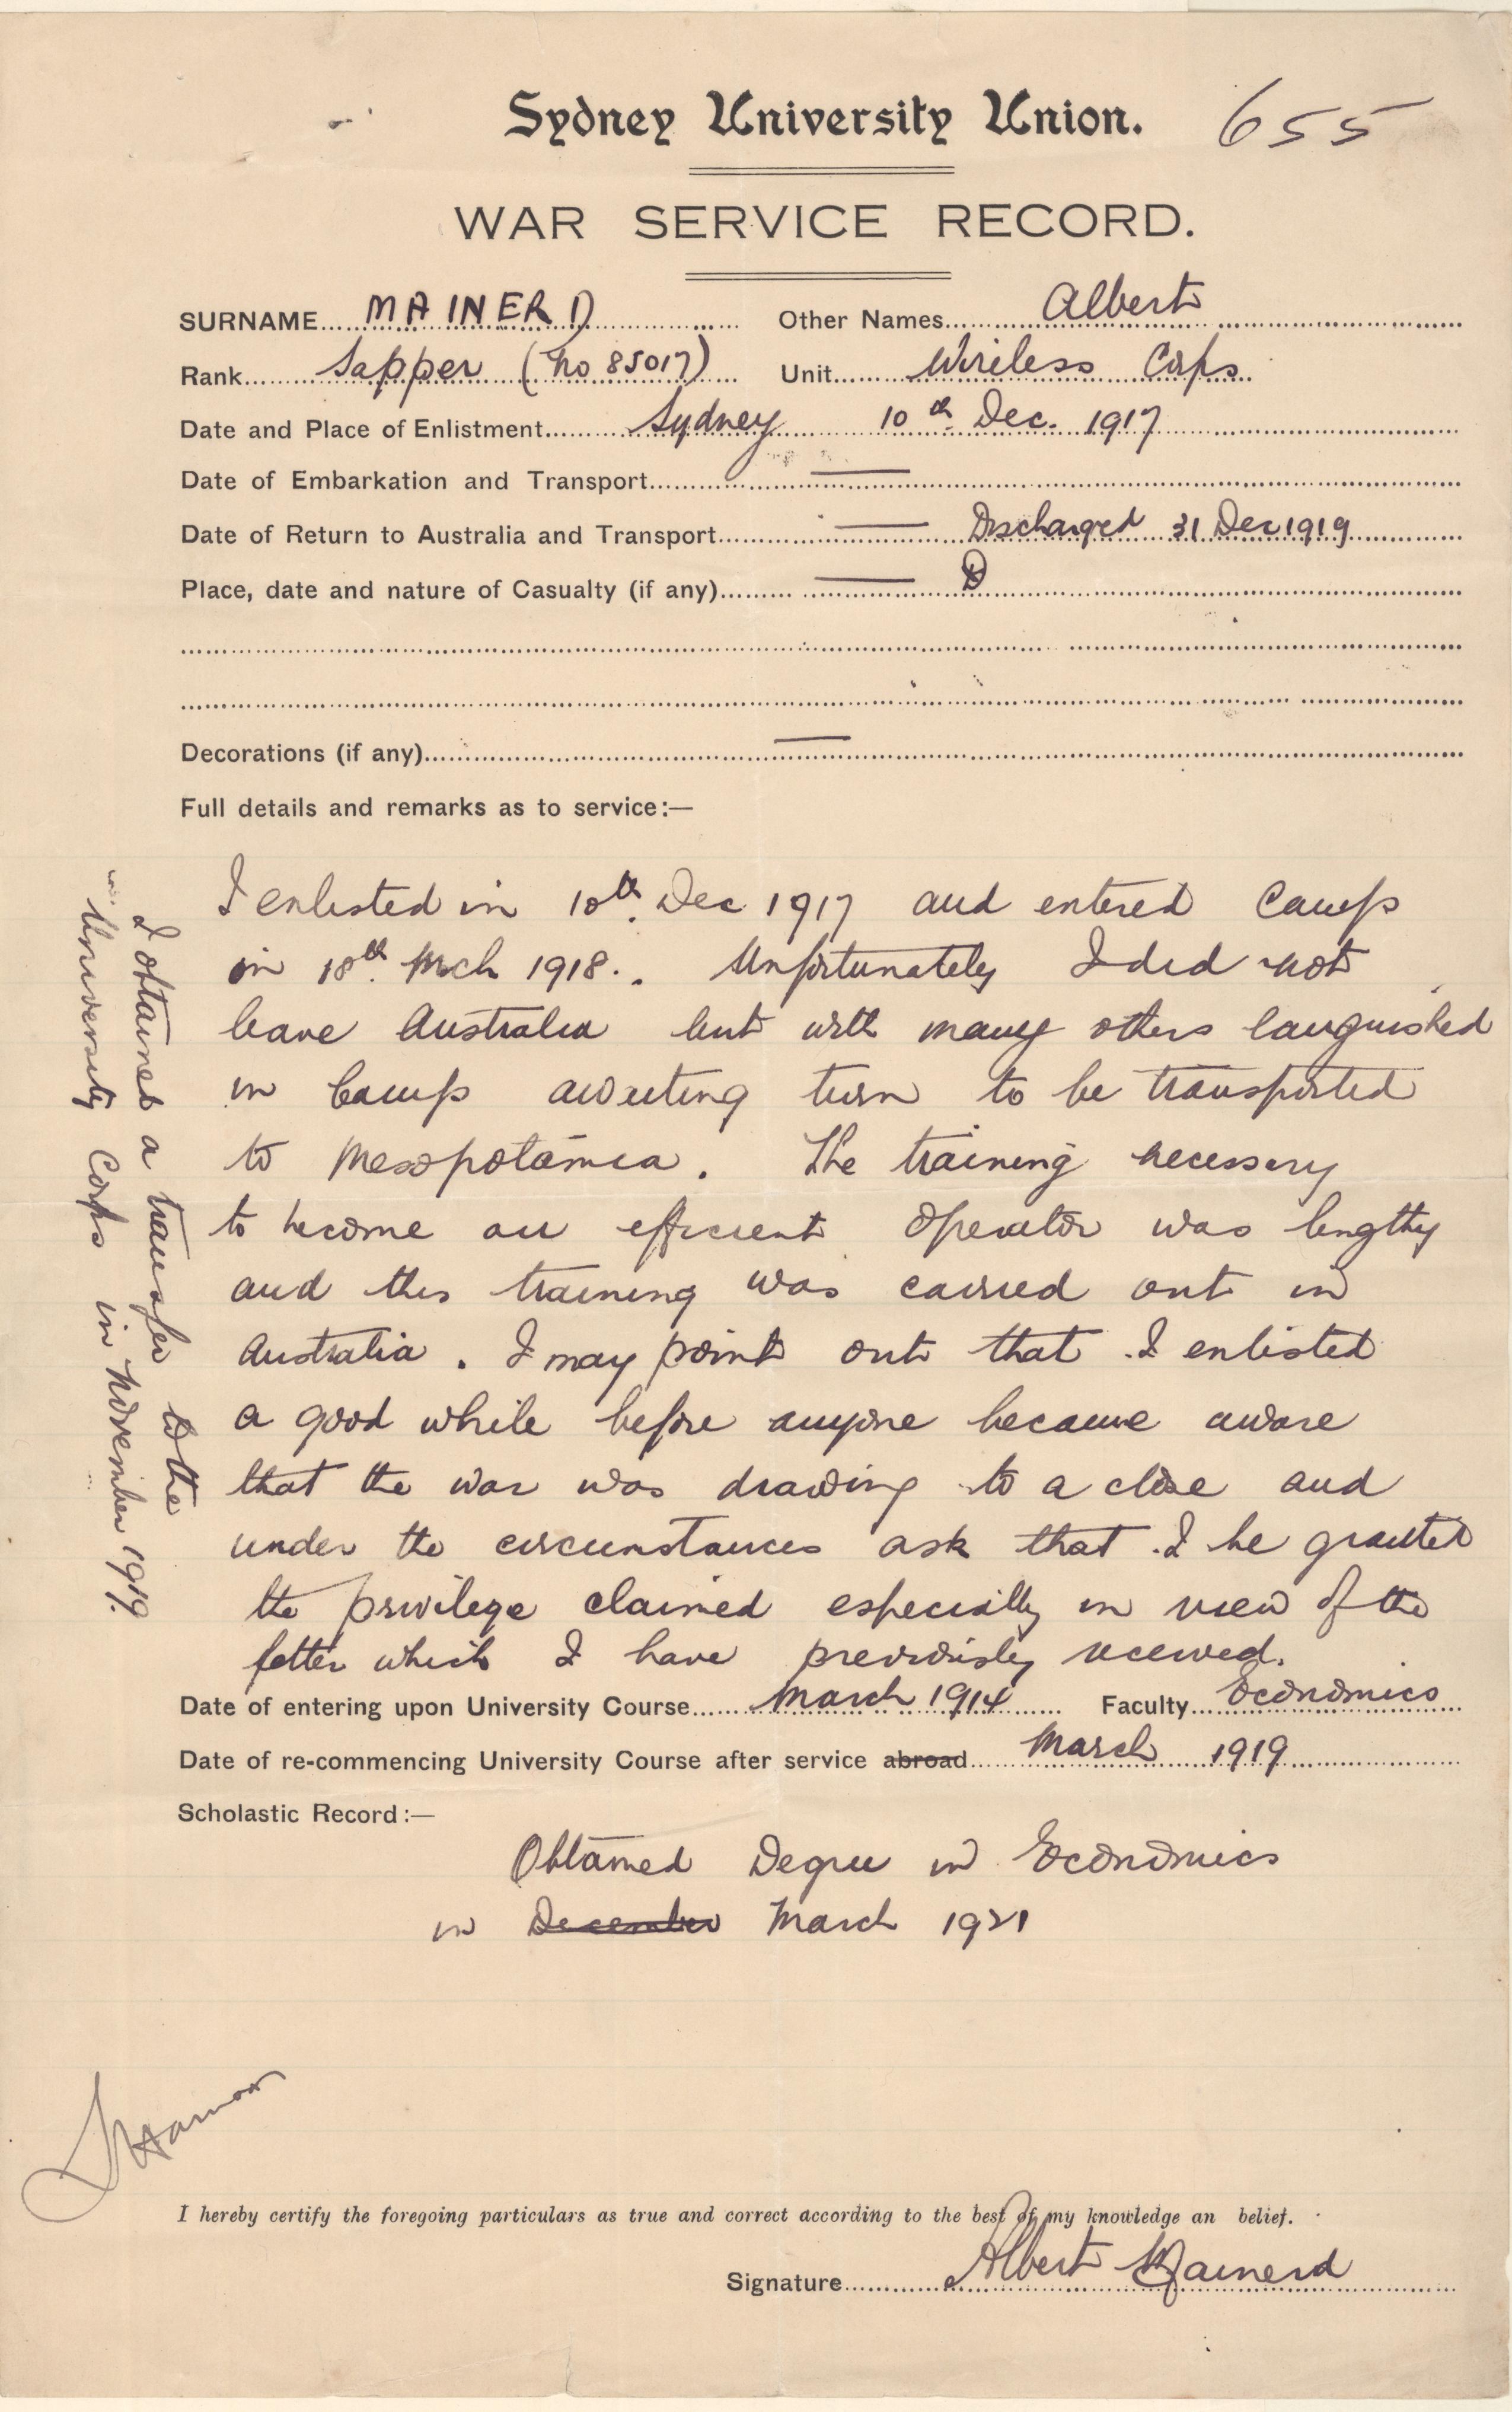 Sydney University Union. 655
WAR SERVICE RECORD.
SURNAME MAINERD Other Names Albert
Rank Sapper (No 85017) Unit Wireless Corps.
Date and Place of Enlistment Sydney 10th Dec. 1917
Date of Embarkation and Transport —
Date of Return to Australia and Transport — Discharged 31 Dec 1919
Place, date and nature of Casualty (if any) —
Decorations (if any) —
Full details and remarks as to service:—
I enlisted in 10th Dec 1917 and entered Camp
in 18th Mch 1918. Unfortunately I did not
leave Australia but with many others languished
in Camp awaiting turn to be transported
to Mesopotamia. The training necessary
to become an efficient operator was lengthy
and this training was carried out in
Australia. I may point out that I enlisted
a good while before anyone became aware
that the war was drawing to a close and
under the circumstances ask that I be granted
the privilege claimed especially in view of the
letter which I have previously received.
I obtained a transfer to the
University Corps in November 1919.
Date of entering upon University Course March 1914 Faculty Economics
Date of re-commencing University Course after service abroad March 1919
Scholastic Record:—
Obtained Degree in Economics
in December March 1921
I hereby certify the foregoing particulars as true and correct according to the best of my knowledge an belief.
Signature Albert Mainerd